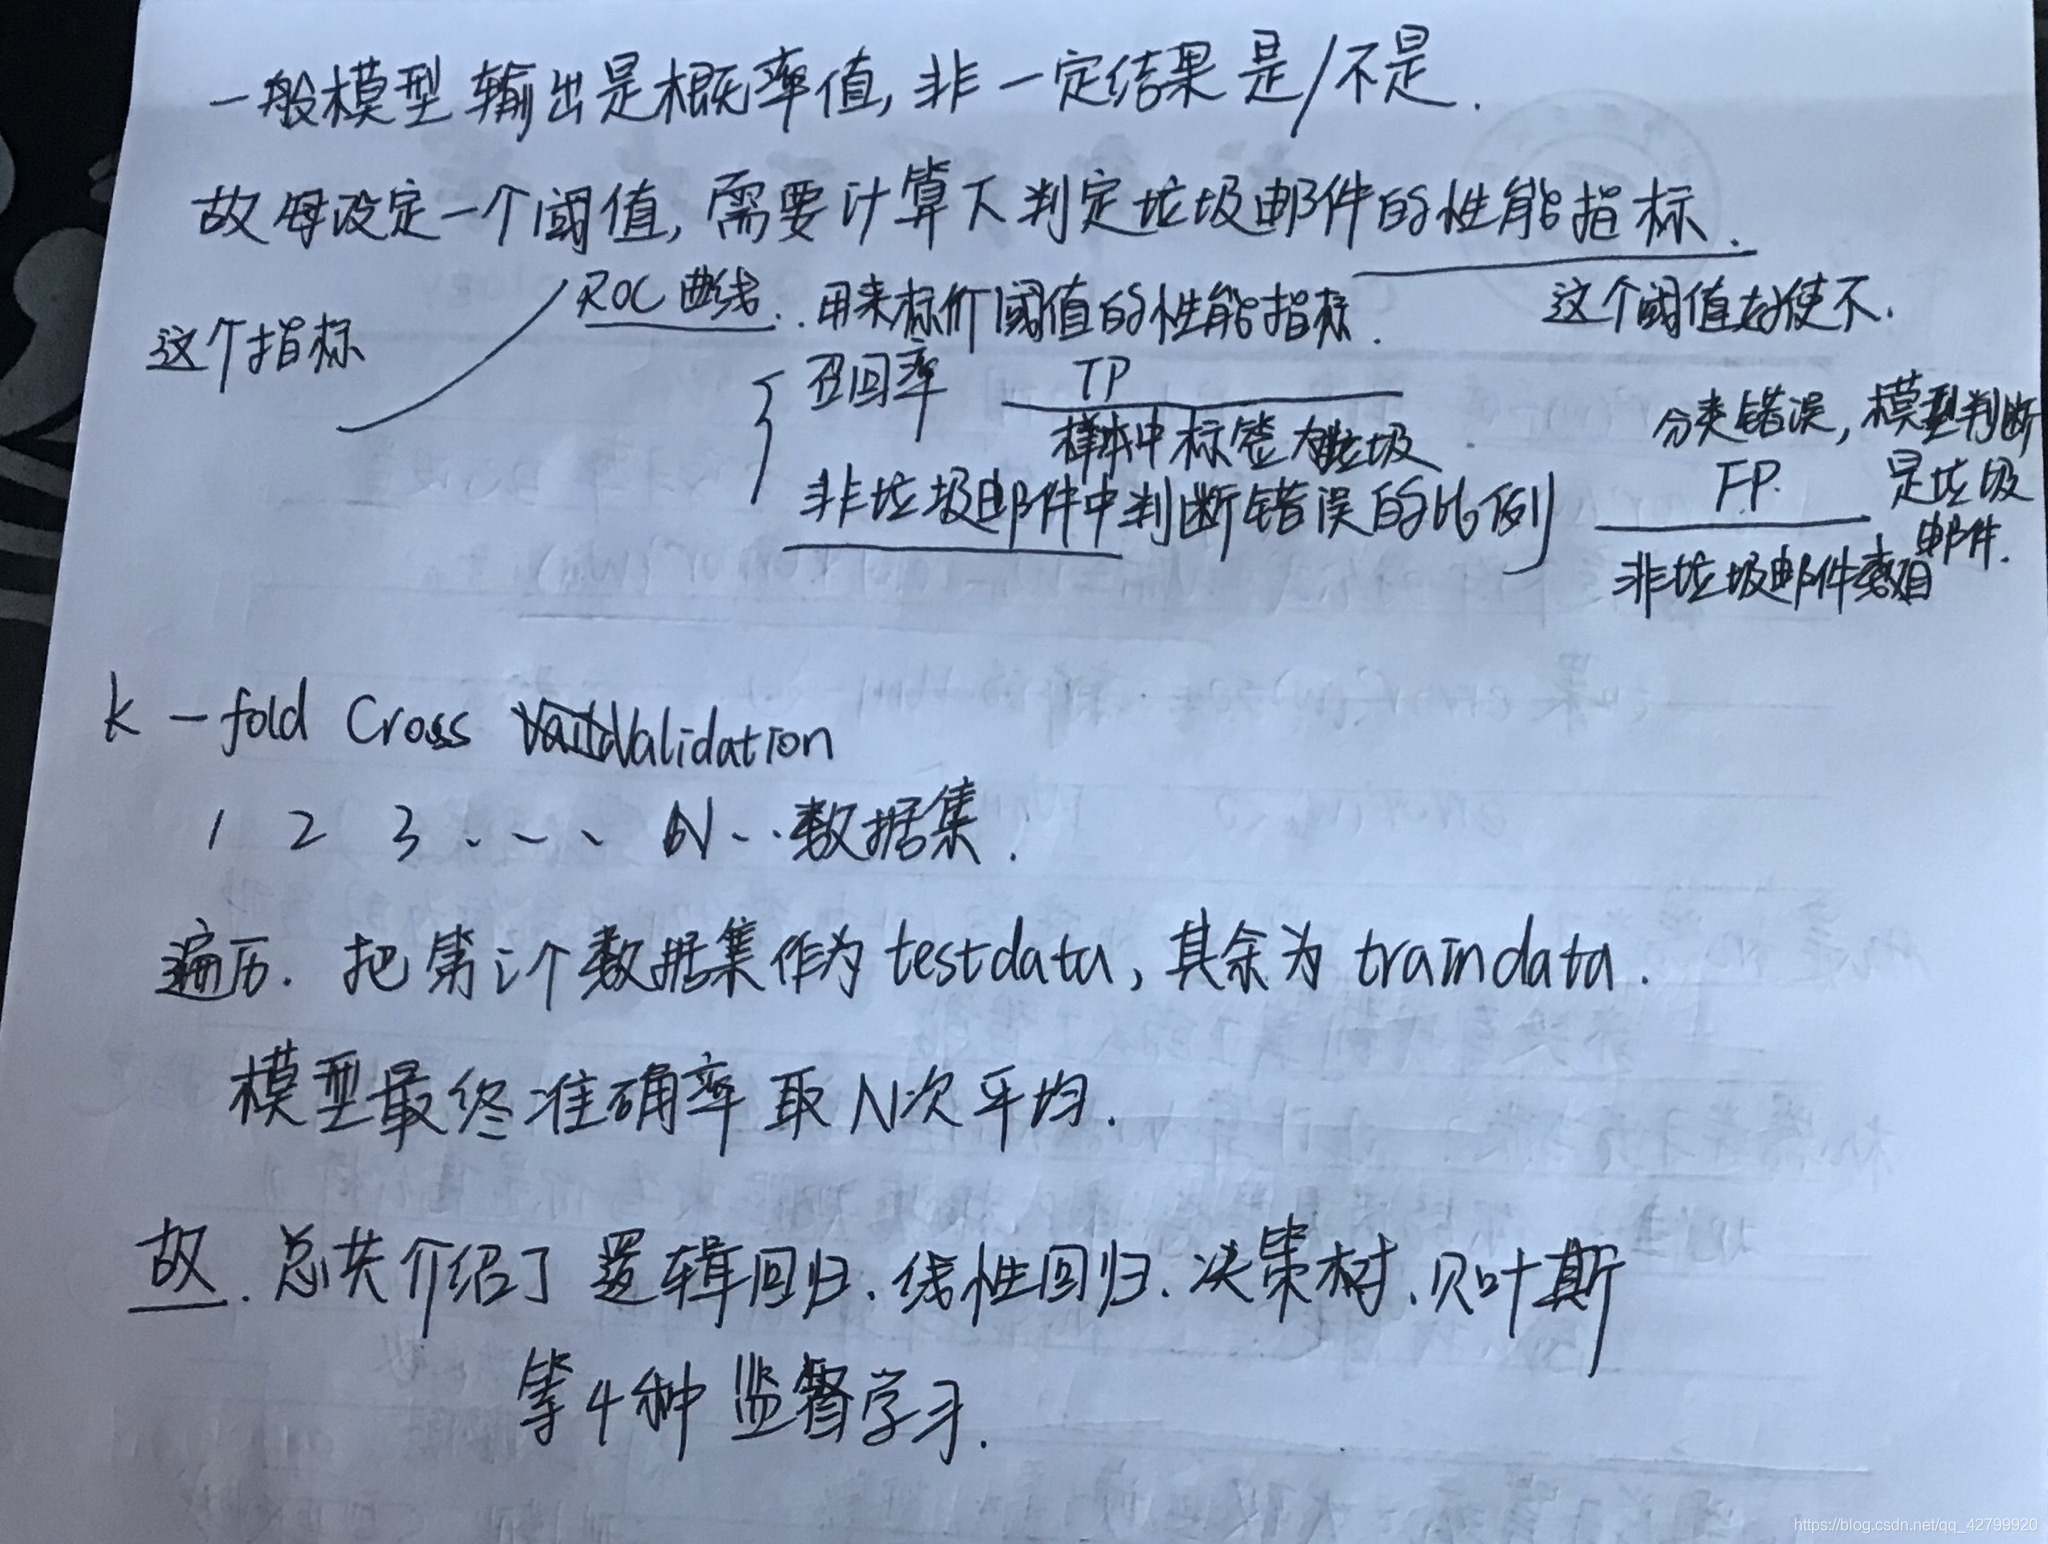 一般模型输出是概率值,非一定结果是/不是.
故每设定一个阈值,需要计算下判定垃圾邮件的性能指标.
这个阈值好使不.
这个指标
ROC曲线..用来标价阈值的性能指标.
召回率 TP
样本中标签为垃圾
非垃圾邮件中判断错误的比例
分类错误,模型判断
是垃圾
邮件.
FP.
非垃圾邮件数目
k-fold Cross Validation
1 2 3 . . . N..数据集.
遍历.把第i个数据集作为testdata,其余为traindata.
模型最终准确率取N次平均.
故.总共介绍了逻辑回归.线性回归.决策树.贝叶斯
等4种监督学习.
https://blog.csdn.net/qq_42799920